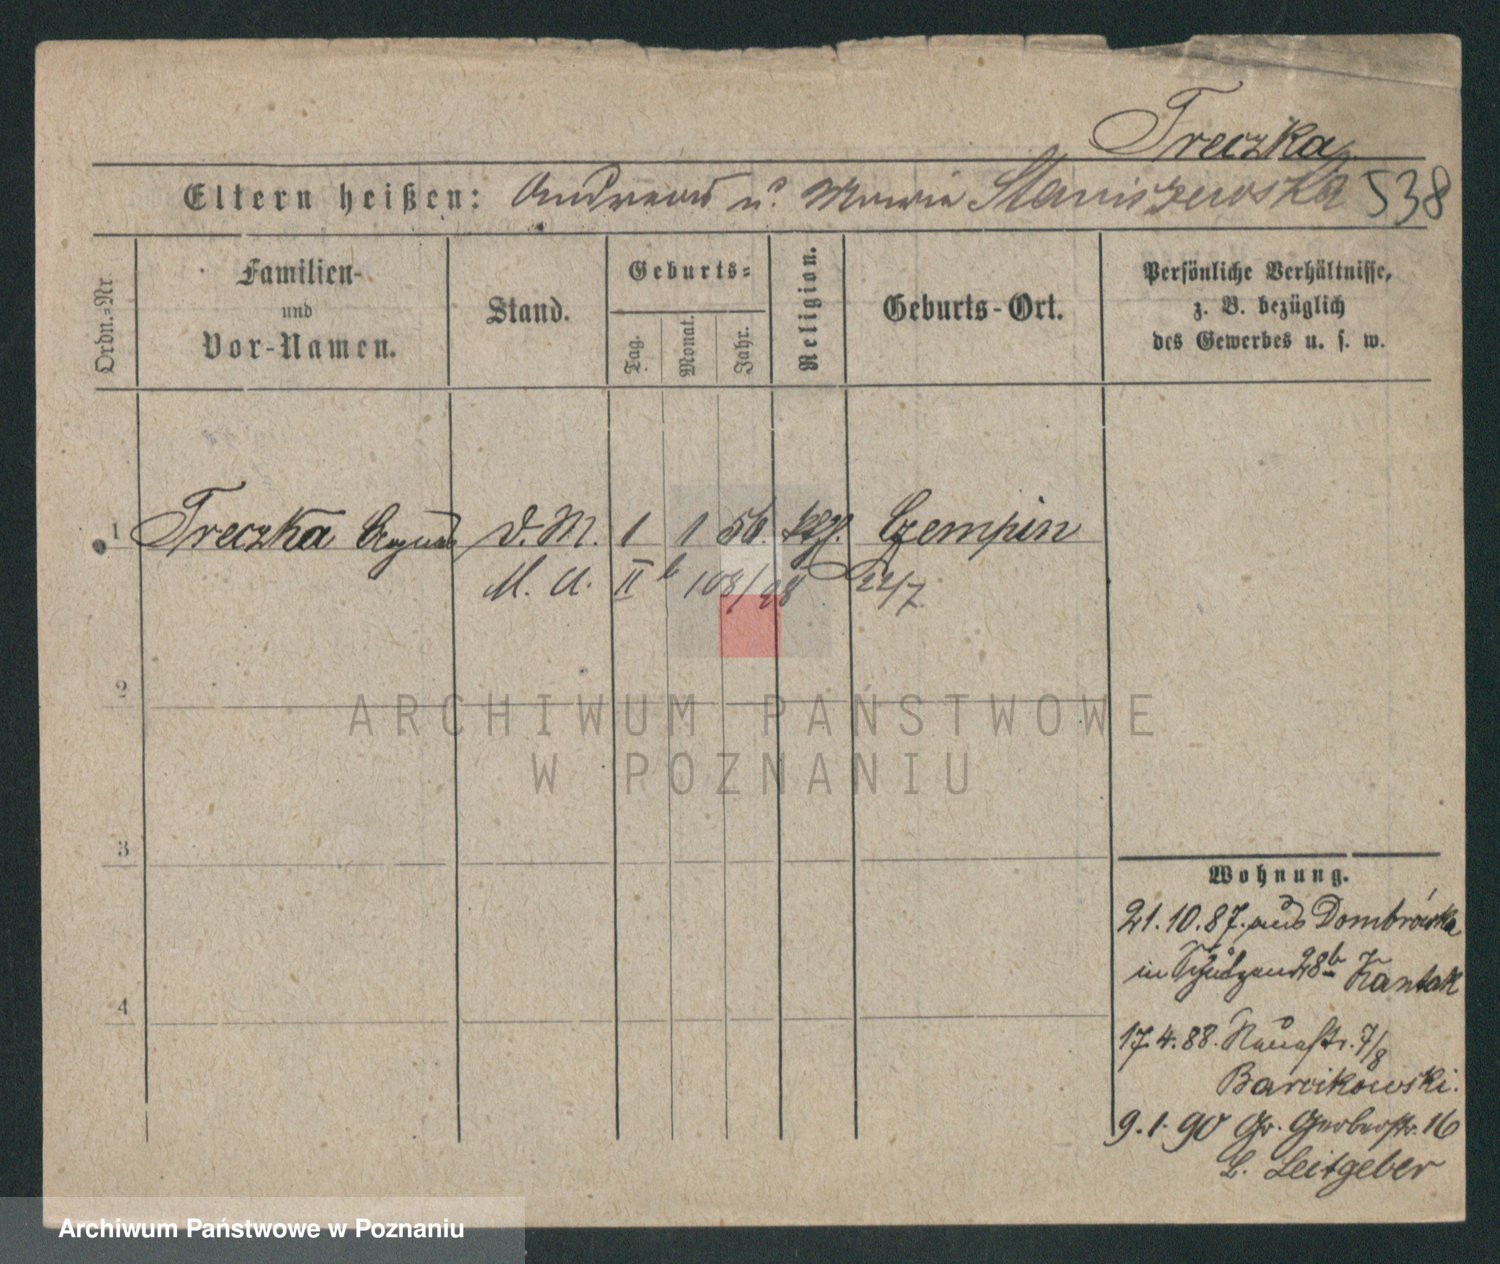 Treczka
Eltern heißen: Andreas u. Marie Staniszewska 538
Ordn.-Nr
Familien-
und
Vor-Namen.
Stand.
Geburts-
Tag.
Monat.
Jahr.
Religion.
Geburts-Ort.
Persönliche Verhältnisse,
z. B. bezüglich
des Gewerbes u. s. w.
1 Treczka D. M. 1 1 56. kth. Czempin
M. A. II b 108/98 22/7
2
3
4
ARCHIWUM PAŃSTWOWE
W POZNANIU
Wohnung.
21.10.87. aus Dombrówka
in Schützenstr 28b Kantak
17.4.88. Neuestr. 7/8
Barcikowski.
9.1.90 Gr. Gerberstr. 16
L. Leitgeber
Archiwum Państwowe w Poznaniu